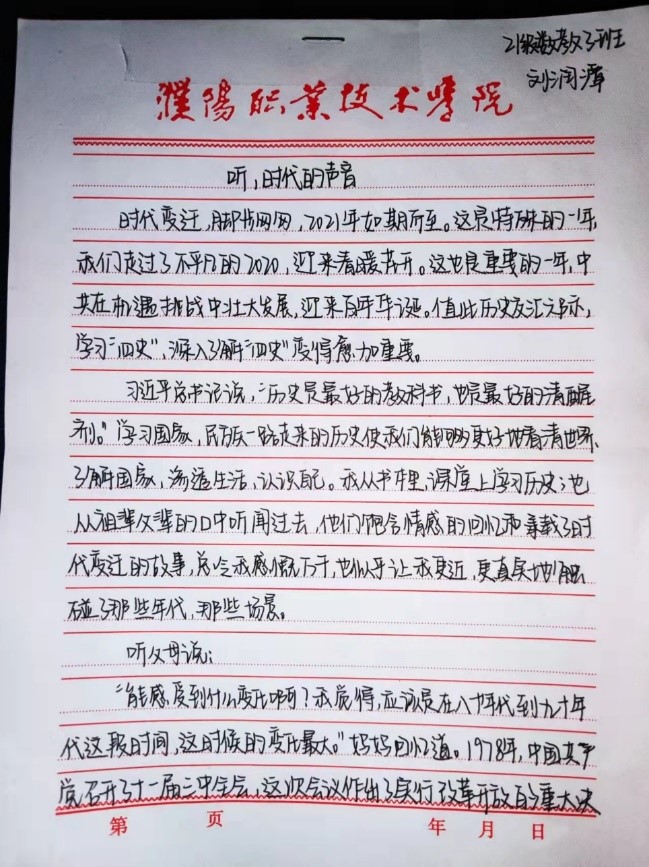 21级数教3班
刘润潭
濮阳职业技术学院
听,时代的声音
时代变迁,脚步匆匆,2021年如期而至。这是特殊的一年,
我们走过了不平凡的2020,迎来春暖花开。这也是重要的一年,中
共在机遇挑战中壮大发展,迎来百年华诞。值此历史交汇之际,
学习“四史”,深入了解“四史”变得愈加重要。
习近平总书记说,“历史是最好的教科书,也是最好的清醒
剂。”学习国家,民族一路走来的历史使我们能够更好地看清世界,
了解国家,渗透生活,认识自己。我从书本里,课堂上学习历史;也
从祖辈父辈的口中听闻过去,他们饱含情感的回忆和承载了时
代变迁的故事,总令我感慨万千,也似乎让我更近,更真实地触
碰了那些年代,那些场景。
听父母说:
“能感受到什么变化啊?我觉得,应该是在八十年代到九十年
代这段时间,这时候的变化最大。”妈妈回忆道。1978年,中国共产
党召开了十一届三中全会,这次会议作出了实行改革开放的重大决
第 页 年 月 日